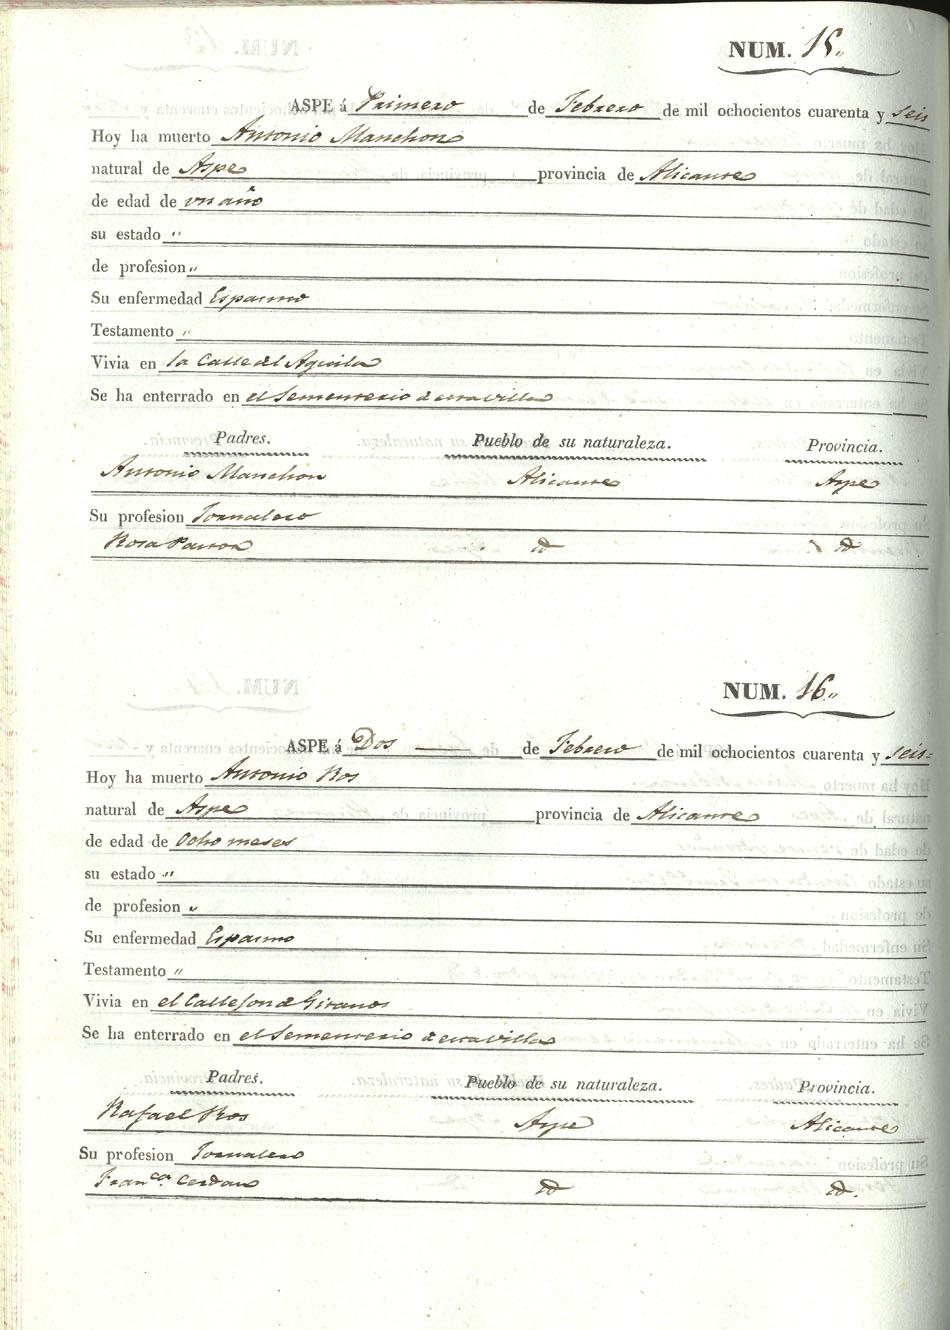 NUM. 15.,
ASPE á Primero de Febrero de mil ochocientos cuarenta y seis
Hoy ha muerto Antonio Manchon
natural de Aspe provincia de Alicante
de edad de un año
su estado "
de profesion "
Su enfermedad Espasmo
Testamento "
Vivia en la Calle del Aguila
Se ha enterrado en el Sementerio de esta villa
Padres. Pueblo de su naturaleza. Provincia.
Antonio Manchon Alicante Aspe
Su profesion Jornalero
Rosa Pastor id id
NUM. 16.,
ASPE á Dos de Febrero de mil ochocientos cuarenta y seis=
Hoy ha muerto Antonio Ros
natural de Aspe provincia de Alicante
de edad de Ocho meses
su estado "
de profesion "
Su enfermedad Espasmo
Testamento "
Vivia en el Callejon de
Se ha enterrado en el Sementerio de esta villa
Padres. Pueblo de su naturaleza. Provincia.
Rafael Ros Aspe Alicante
Su profesion Jornalero
Franca. Cerdan id id.